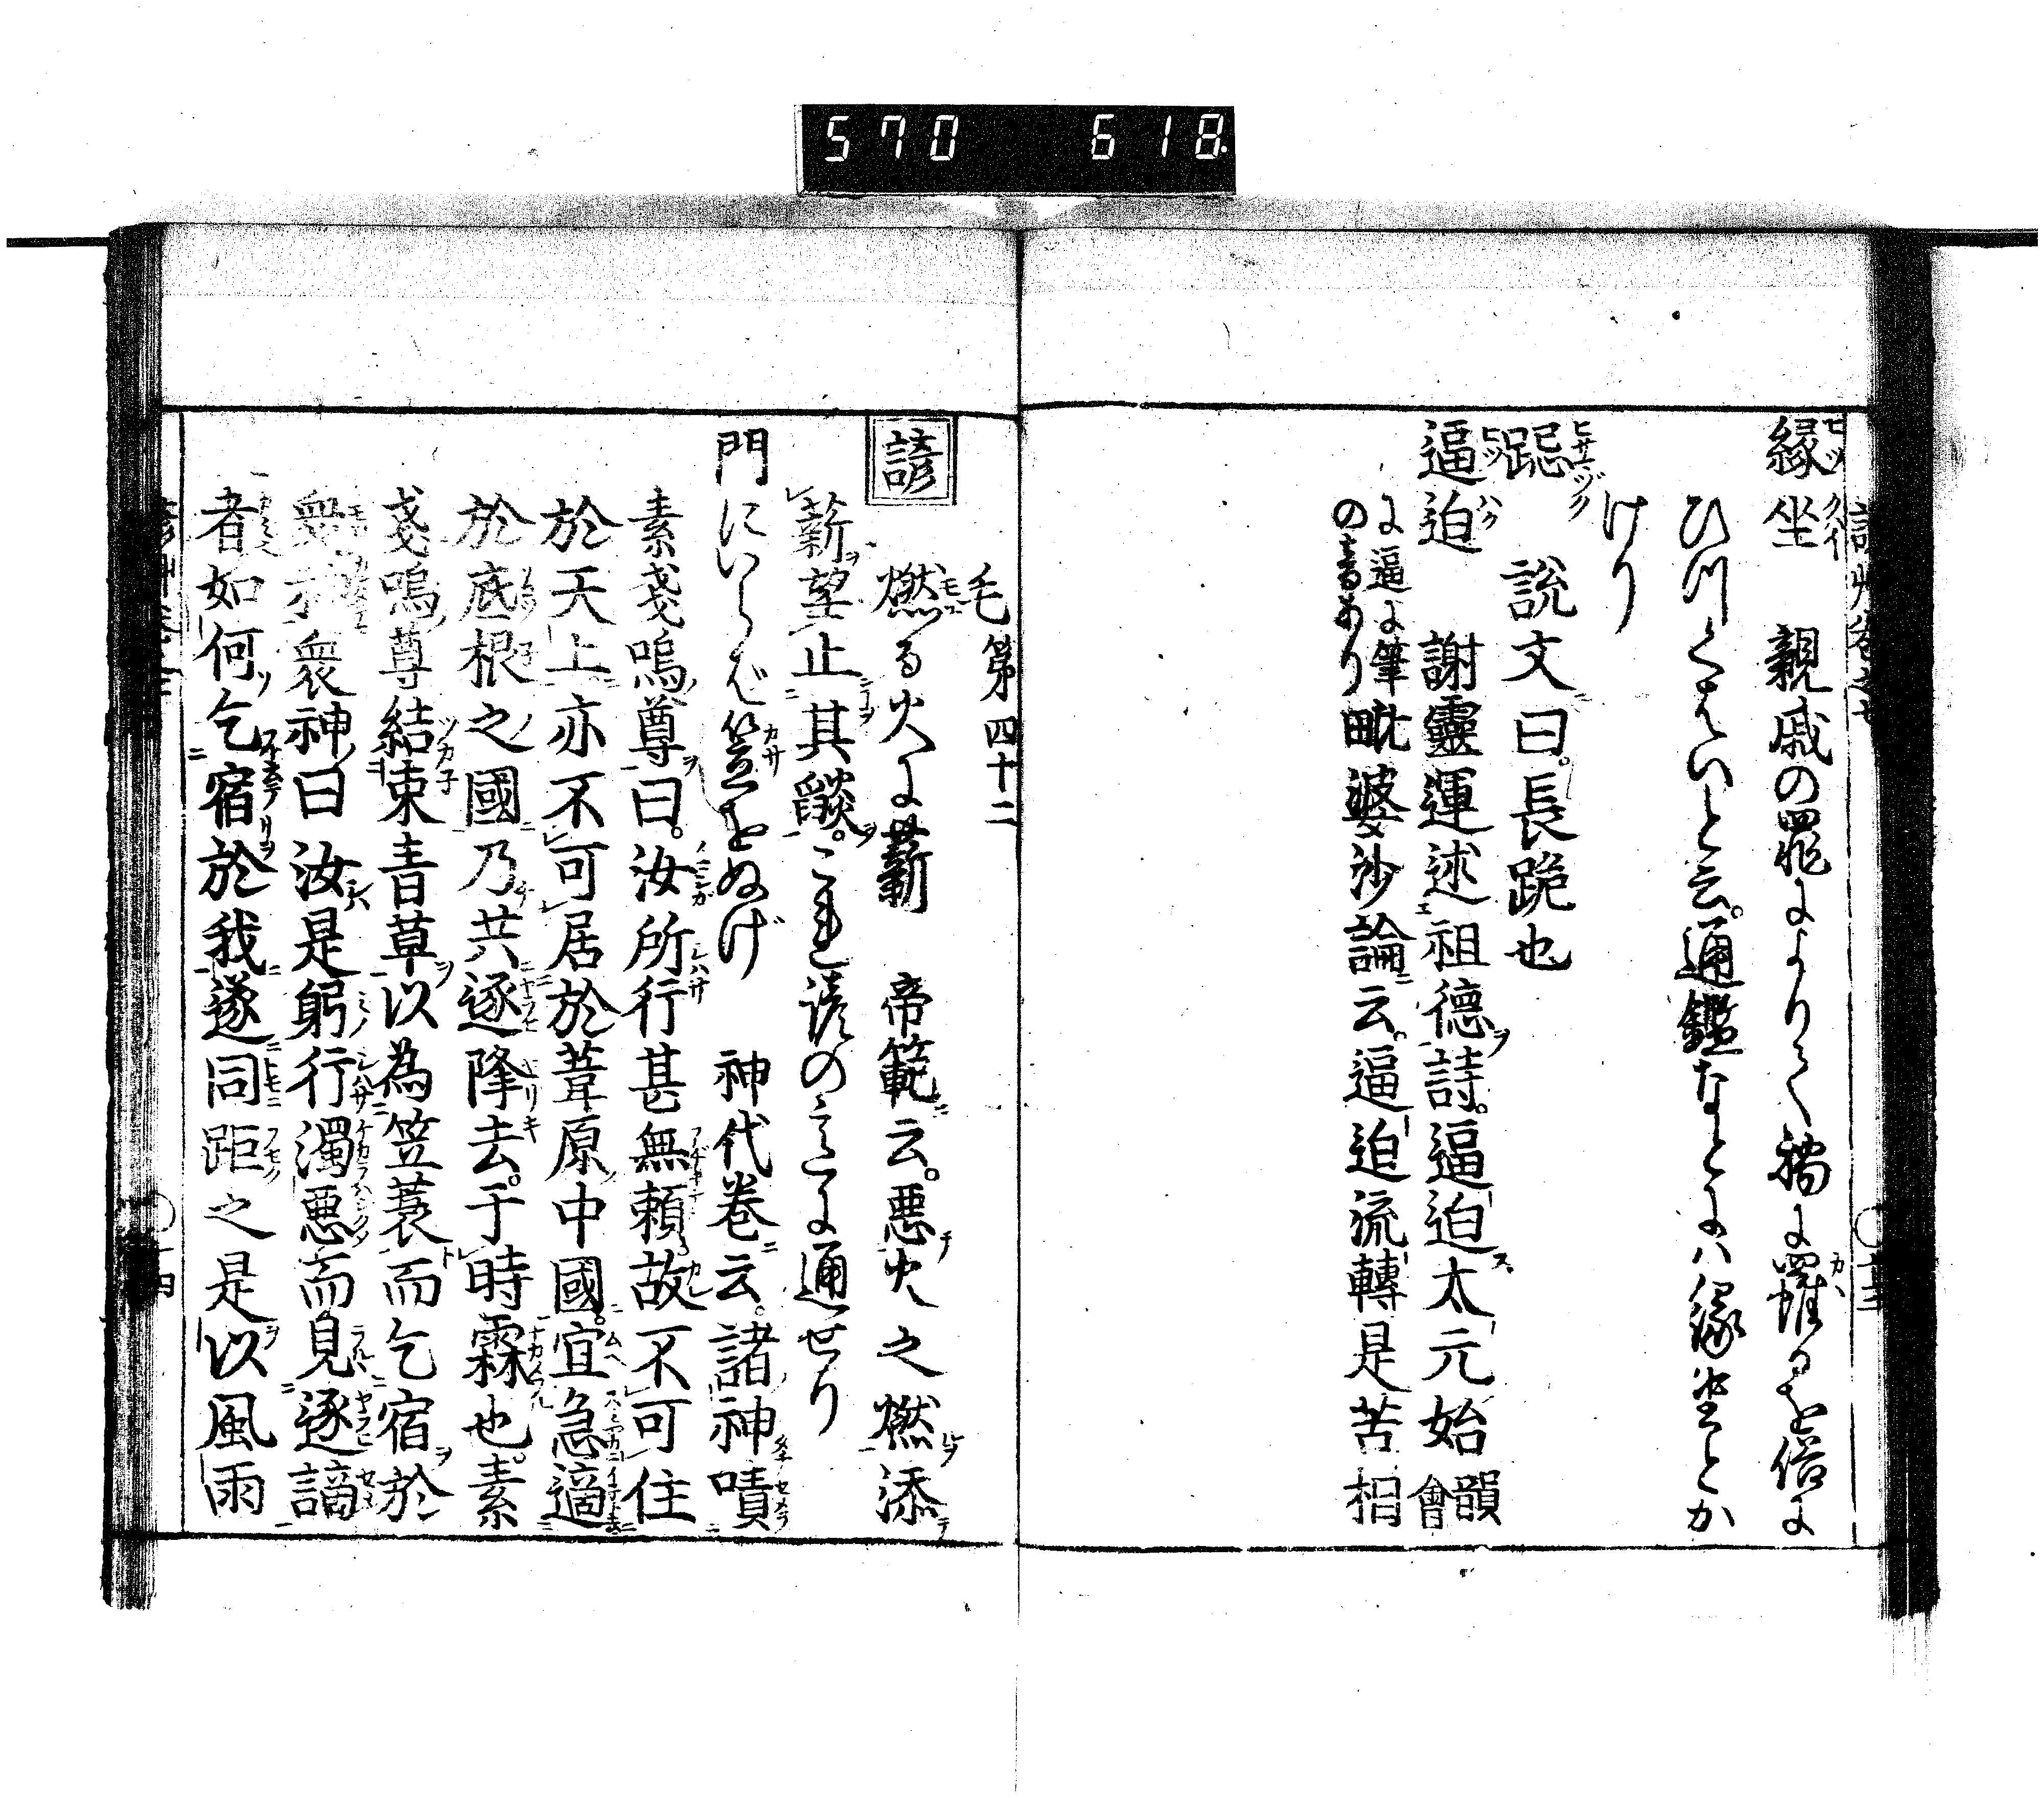 570 618
縁坐 親戚の罪によりて禍に羅るを俗に
ひつくはいと云。通鑑なとにハ縁坐とか
けり
跽 説文曰。長跪也
逼迫 謝靈運述祖德詩。逼迫太元始 韻會
に逼に筆
の音あり 毗婆沙論云。逼迫流轉是苦相
毛第四十二
諺 燃る火に薪 帝範云。悪火之燃添
薪望止其燄。これ諺の意に通せり
門にいらば笠をぬげ 神代巻云。諸神嘖
素戔嗚尊曰。汝所行甚無頼故不可住
於天上亦不可居於葦原中國。宜急適
於底根之國乃共逐降去。于時霖也。素
戔嗚尊結束青草以為笠蓑而乞宿於
衆神衆神曰汝是躬行濁悪而見逐謫
者如何乞宿於我遂同距之是以風雨